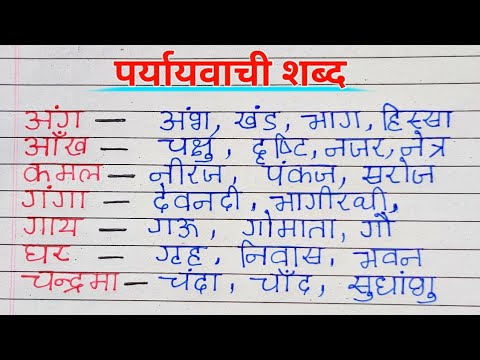 पर्यायवाची शब्द
अंग — अंश, खंड, भाग, हिस्सा
आँख — चक्षु, दृष्टि, नजर, नेत्र
कमल — नीरज, पंकज, सरोज
गंगा — देवनदी, भागीरथी,
गाय — गऊ, गोमाता, गौ
घर — गृह, निवास, भवन
चन्द्रमा — चंदा, चाँद, सुधांशु